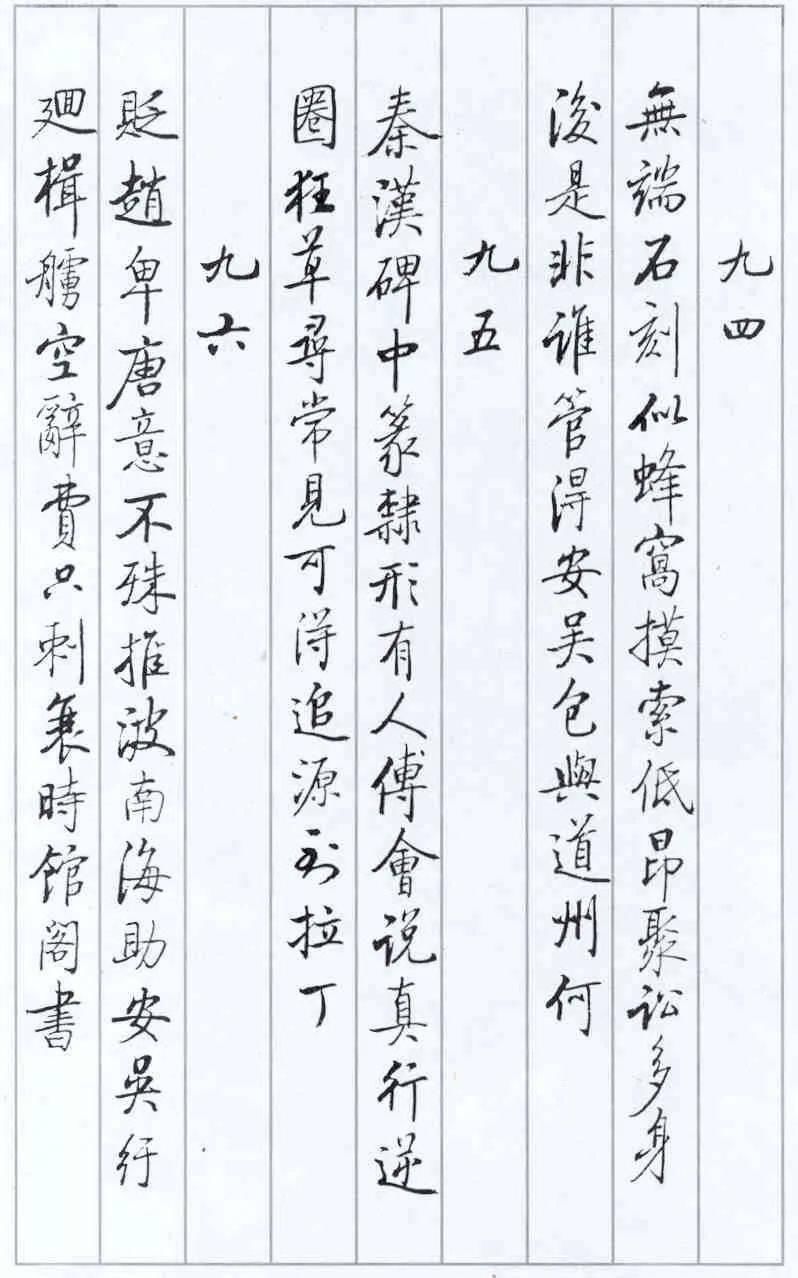 九四
無端石刻似蜂窩摸索低昂聚訟多身
後是非誰管得安吴包與道州何
九五
秦漢碑中篆隸形有人傅會说真行逆
圈狂草尋常見可得追源到拉丁
九六
貶趙卑唐意不殊推波南海助安吳紆
迴楫艣空辭費只刺衰時館阁書